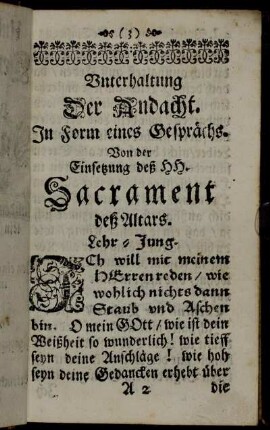 (3)
Vnterhaltung
Der Andacht.
In Form eines Gesprächs.
Von der
Einsetzung deß HH.
Sacrament
deß Altars.
Lehr-Jung.
ICh will mit meinem
HErren reden / wie
wohlich nichts dann
Staub vnd Aschen
bin. O mein GOtt / wie ist dein
Weißheit so wunderlich! wie tieff
seyn deine Anschläge! wie hoh
seyn deine Gedancken erhebt über
A 2 die